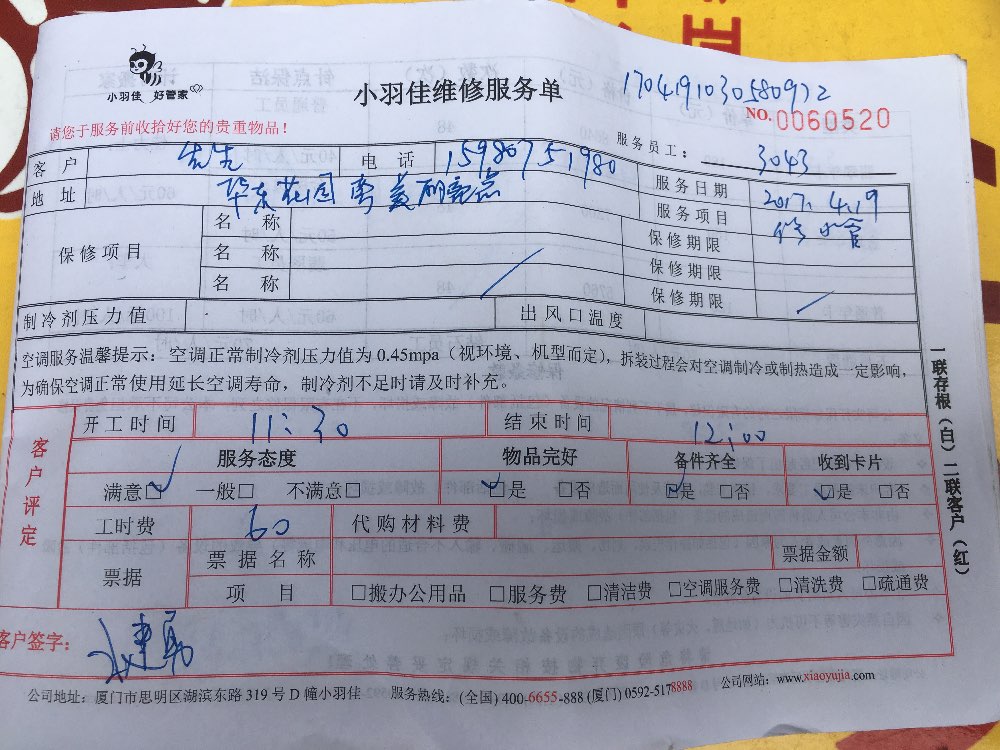 小羽佳 好管家
小羽佳维修服务单
1704191030580972
NO.0060520
请您于服务前收拾好您的贵重物品！
服务员工： 3043
客户 先生 电话 15980751980 服务日期 2017.4.19
地址 华东花园 服务项目 修水管
保修项目 名称 保修期限
名称 保修期限
名称 保修期限
制冷剂压力值 出风口温度
空调服务温馨提示：空调正常制冷剂压力值为0.45mpa（视环境、机型而定），拆装过程会对空调制冷或制热造成一定影响，
为确保空调正常使用延长空调寿命，制冷剂不足时请及时补充。
客户评定
开工时间 11:30 结束时间 12:00
服务态度 物品完好 备件齐全 收到卡片
满意☑ 一般□ 不满意□ ☑是 □否 ☑是 □否 ☑是 □否
工时费 60 代购材料费
票据 票据名称 票据金额
项目 □搬办公用品 □服务费 □清洁费 □空调服务费 □清洗费 □疏通费
客户签字：
公司地址：厦门市思明区湖滨东路319号D幢小羽佳 服务热线：(全国) 400-6655-888 (厦门) 0592-5178888 公司网站：www.xiaoyujia.com
一联存根（白）二联客户（红）